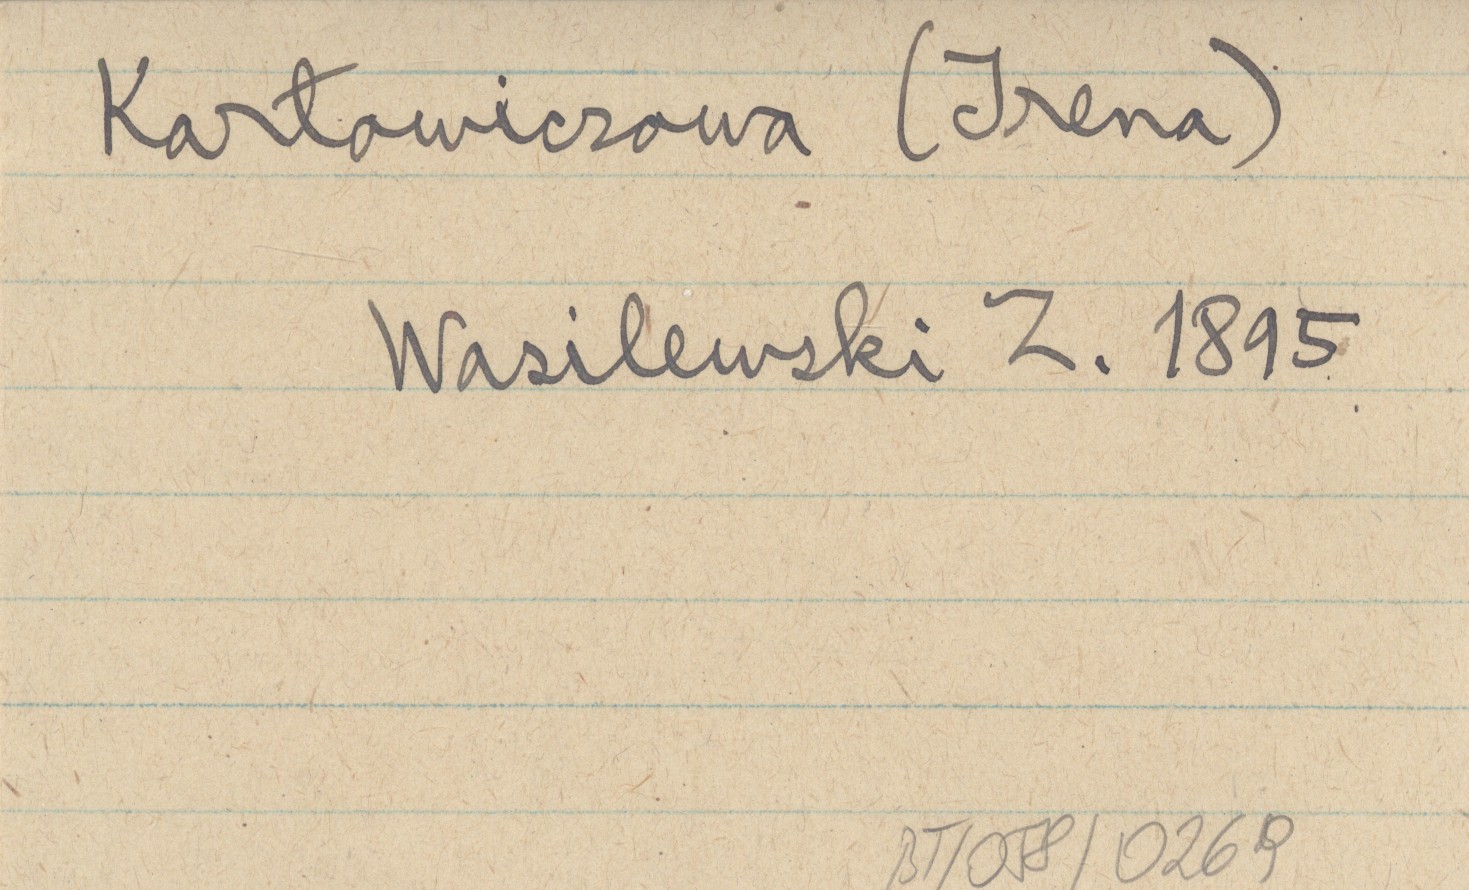 Karłowiczowa (Irena)
Wasilewski Z. 1895
BT/078/0269